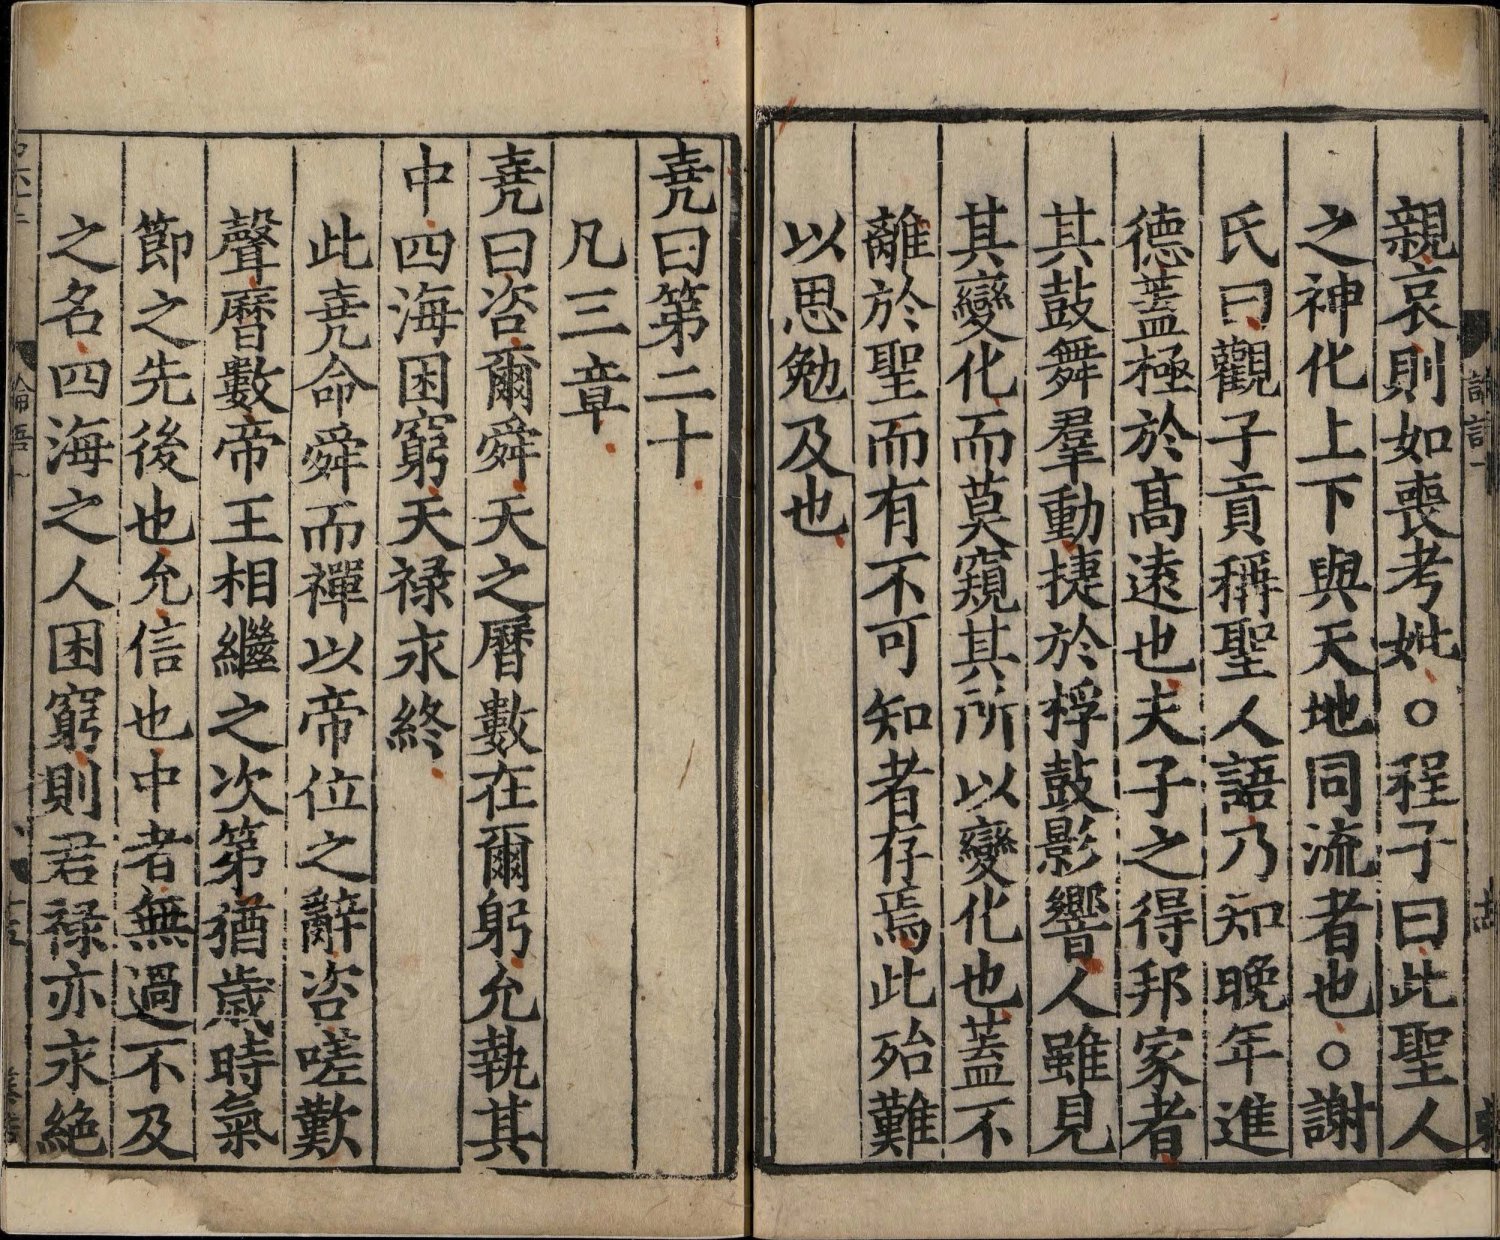 親哀則如喪考妣○程子曰此聖人
之神化上下與天地同流者也○謝
氏曰觀子貢稱聖人語乃知晚年進
德蓋極於高遠也夫子之得邦家者
其鼓舞羣動捷於桴鼓影響人雖見
其變化而莫窺其所以變化也蓋不
離於聖而有不可知者存焉此殆難
以思勉及也
堯曰第二十
凡三章
堯曰咨爾舜天之曆數在爾躬允執其
中四海困窮天祿永終
此堯命舜而禪以帝位之辭咨嗟歎
聲曆數帝王相繼之次第猶歲時氣
節之先後也允信也中者無過不及
之名四海之人困窮則君祿亦永絕
論語